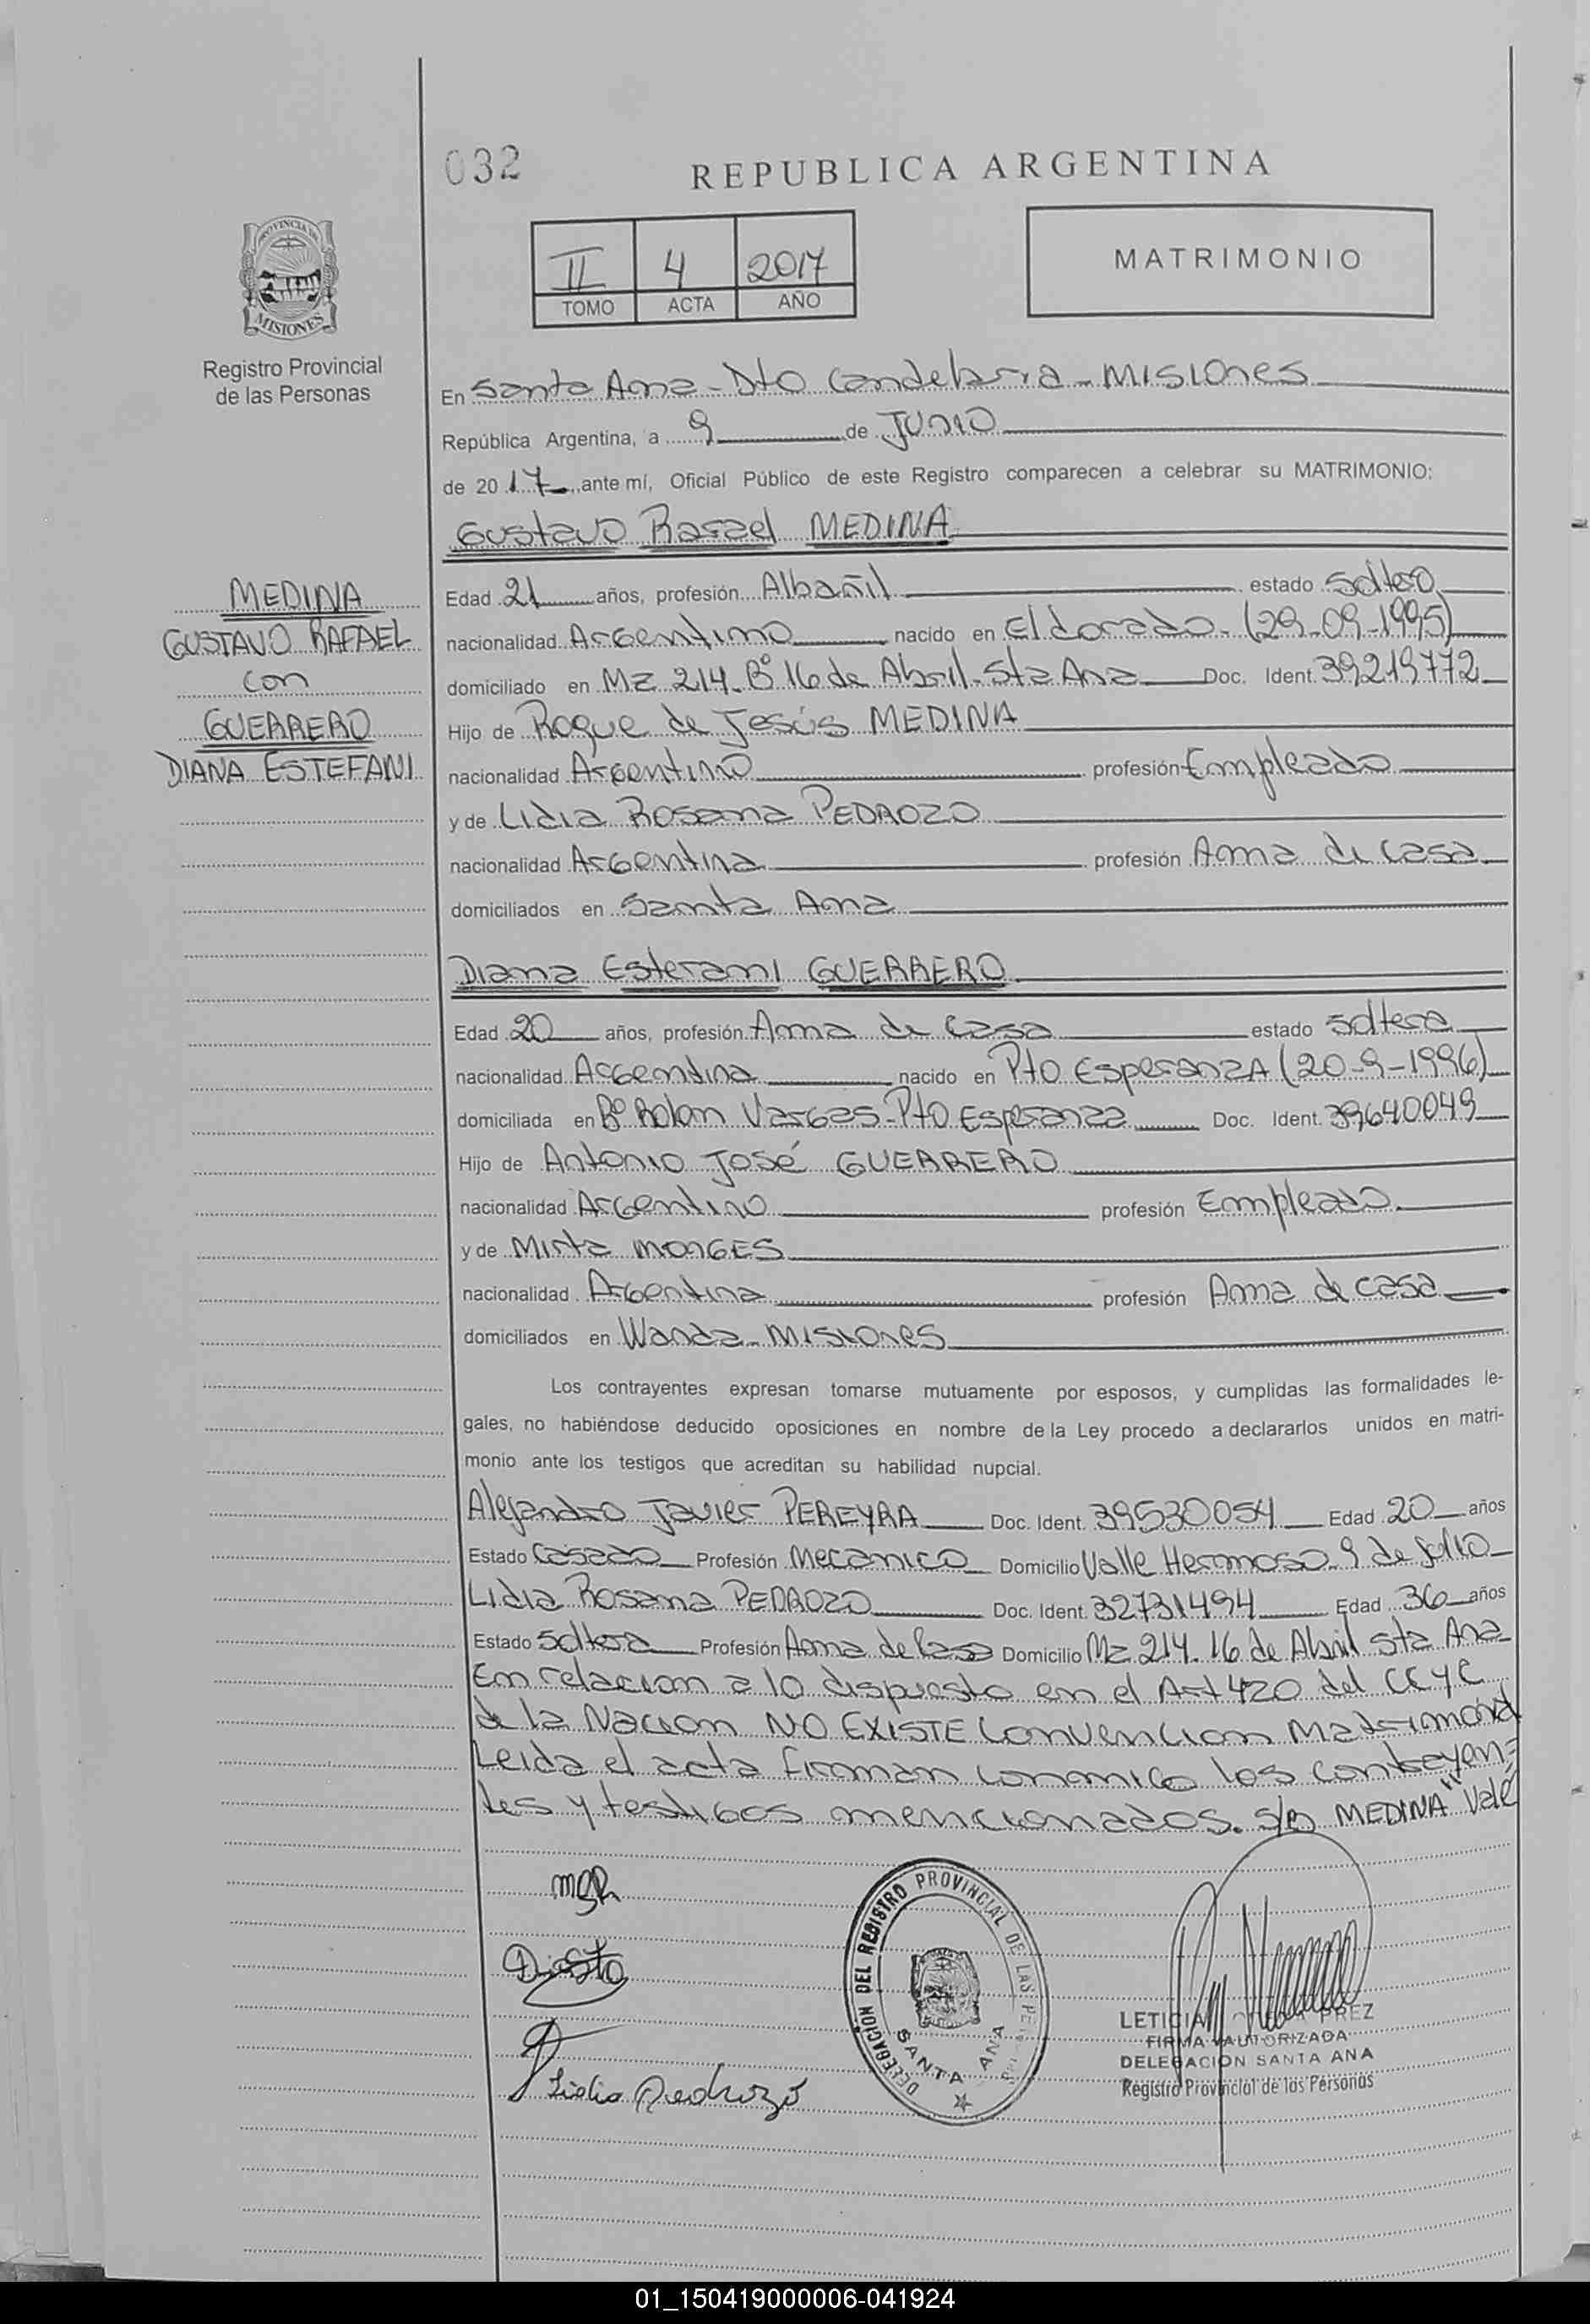 032
REPUBLICA ARGENTINA
II 4 2017
TOMO ACTA AÑO
MATRIMONIO
PROVINCIA DE
MISIONES
Registro Provincial
de las Personas
En Santa Ana - Dto Candelaria - Misiones
República Argentina, a 9 de Junio
de 2017 ante mí, Oficial Público de este Registro comparecen a celebrar su MATRIMONIO:
Gustavo Rafael MEDINA
MEDINA
GUSTAVO RAFAEL
con
GUERRERO
DIANA ESTEFANI
Edad 21 años, profesión Albañil estado Soltero
nacionalidad Argentino nacido en Eldorado - (29-09-1995)
domiciliado en Mz 214 - Bº 16 de Abril - Sta Ana Doc. Ident. 39219772
Hijo de Roque de Jesús MEDINA
nacionalidad Argentino profesión Empleado
y de Lidia Rosana PEDROZO
nacionalidad Argentina profesión Ama de casa
domiciliados en Santa Ana
Diana Estefani GUERRERO
Edad 20 años, profesión Ama de casa estado soltera
nacionalidad Argentina nacido en Pto Esperanza (20-9-1996)
domiciliada en Bº Rolon Vargas - Pto Esperanza Doc. Ident. 39640049
Hijo de Antonio José GUERRERO
nacionalidad Argentino profesión Empleado
y de Mirta MONGES
nacionalidad Argentina profesión Ama de casa
domiciliados en Wanda - Misiones
Los contrayentes expresan tomarse mutuamente por esposos, y cumplidas las formalidades le-
gales, no habiéndose deducido oposiciones en nombre de la Ley procedo a declararlos unidos en matri-
monio ante los testigos que acreditan su habilidad nupcial.
Alejandro Javier PEREYRA Doc. Ident. 39530054 Edad 20 años
Estado Casado Profesión Mecanico Domicilio Valle Hermoso 9 de Julio
Lidia Rosana PEDROZO Doc. Ident. 32731494 Edad 36 años
Estado Soltera Profesión Ama de Casa Domicilio Mz 214. 16 de Abril Sta Ana
En relacion a lo dispuesto en el Art 420 del CC y C
de la Nacion NO EXISTE Convencion Matrimonial
Leida el acta firman conmigo los contrayen=
tes y testigos mencionados. S/B MEDINA" Vale
DELEGACION DEL REGISTRO PROVINCIAL DE LAS
SANTA ANA
LETICIA
FIRMA AUTORIZADA
DELEGACION SANTA ANA
Registro Provincial de las Personas
Lidia Pedrozo
01_150419000006-041924